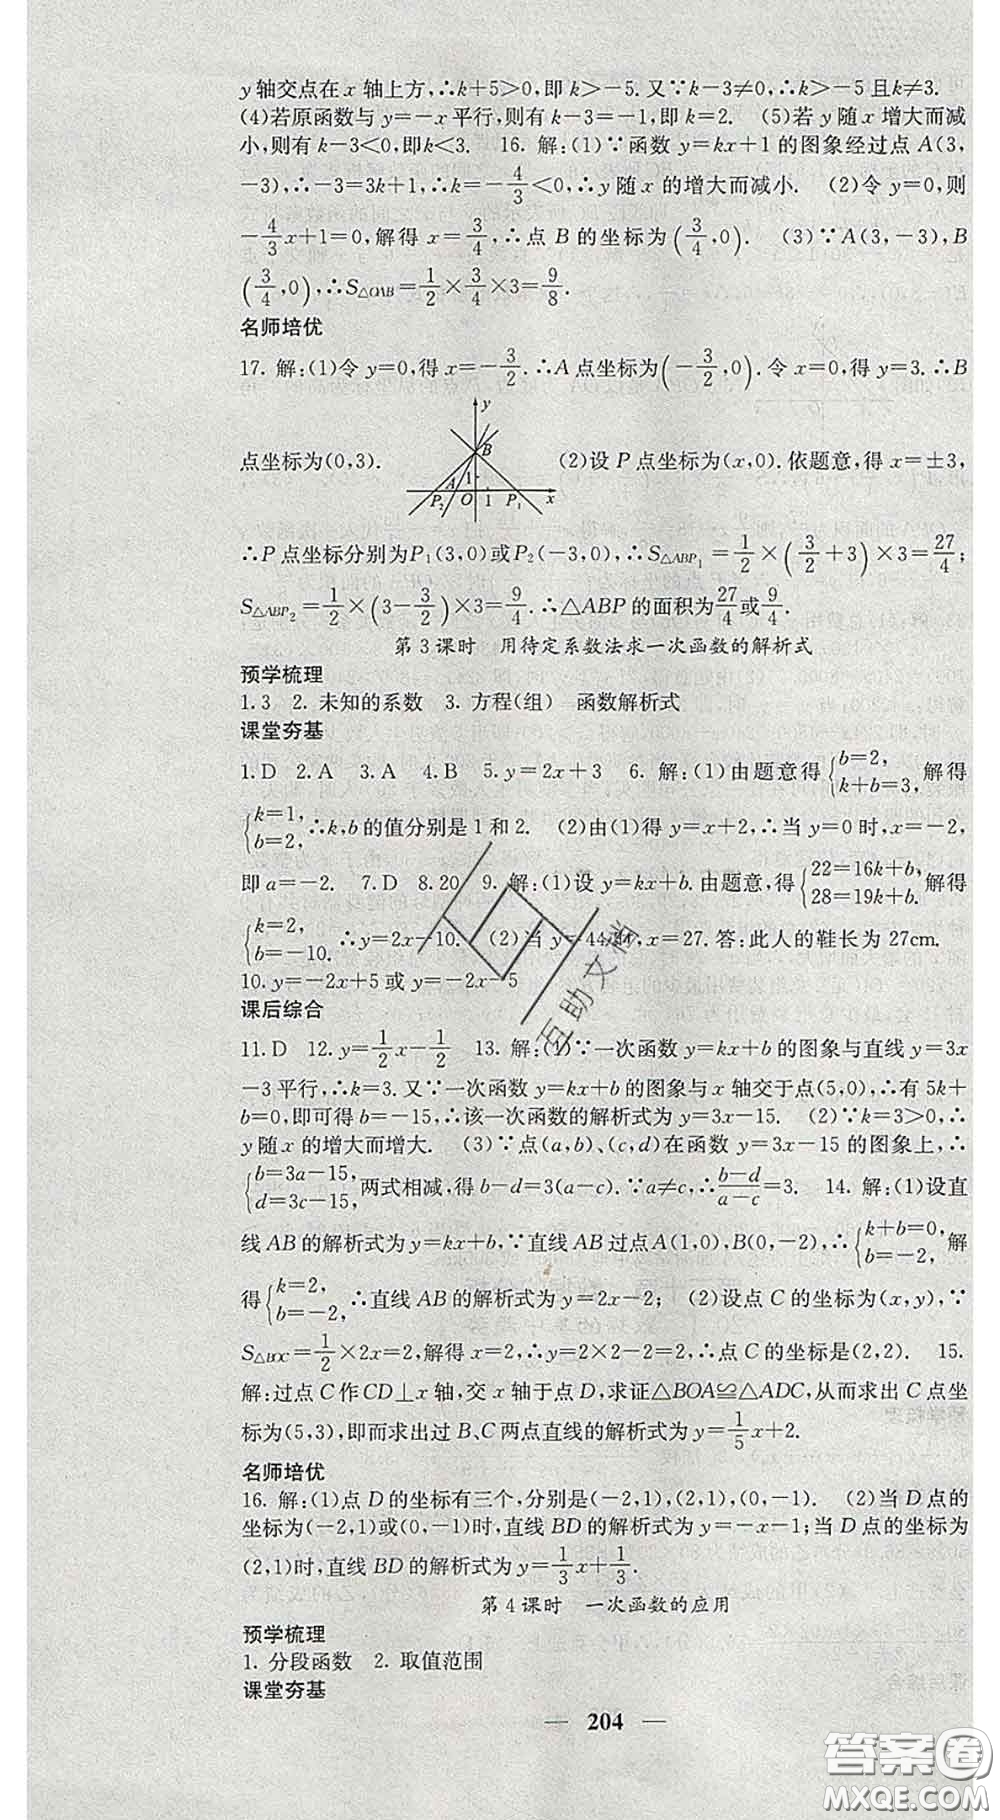 y轴交点在x轴上方,∴k+5>0,即k>-5.又∵k-3≠0,∴k>-5且k≠3.
(4)若原函数与y=-x平行,则有k-3=-1,即k=2. (5)若y随x增大而减
小,则有k-3<0,即k<3. 16. 解:(1)∵函数y=kx+1的图象经过点A(3,
-3),∴-3=3k+1,∴k=-4/3<0,∴y随x的增大而减小. (2)令y=0,则
-4/3x+1=0,解得x=3/4,∴点B的坐标为(3/4,0). (3)∵A(3,-3),B
(3/4,0),∴S△OAB=1/2×3/4×3=9/8.
名师培优
17. 解:(1)令y=0,得x=-3/2.∴A点坐标为(-3/2,0).令x=0,得y=3.∴B
点坐标为(0,3). (2)设P点坐标为(x,0).依题意,得x=±3,
y
B
A 1
P₂ O 1 P₁ x
∴P点坐标分别为P₁(3,0)或P₂(-3,0),∴S△ABP₁=1/2×(3/2+3)×3=27/4;
S△ABP₂=1/2×(3-3/2)×3=9/4.∴△ABP的面积为27/4或9/4.
第3课时 用待定系数法求一次函数的解析式
预学梳理
1.3 2. 未知的系数 3. 方程(组) 函数解析式
课堂夯基
1.D 2.A 3.A 4.B 5.y=2x+3 6. 解:(1)由题意得{b=2, k+b=3,解得
{k=1, b=2,∴k,b的值分别是1和2. (2)由(1)得y=x+2,∴当y=0时,x=-2,
即a=-2. 7.D 8.20 9. 解:(1)设y=kx+b.由题意,得{22=16k+b, 28=19k+b.解得
{k=2, b=-10.∴y=2x-10. (2)当y=44时,x=27.答:此人的鞋长为27cm.
10.y=-2x+5或y=-2x-5
课后综合
11.D 12.y=1/2x-1/2 13. 解:(1)∵一次函数y=kx+b的图象与直线y=3x
-3平行,∴k=3.又∵一次函数y=kx+b的图象与x轴交于点(5,0),∴有5k+
b=0,即可得b=-15,∴该一次函数的解析式为y=3x-15. (2)∵k=3>0,∴
y随x的增大而增大. (3)∵点(a,b)、(c,d)在函数y=3x-15的图象上,∴
{b=3a-15, d=3c-15,两式相减,得b-d=3(a-c).∵a≠c,∴(b-d)/(a-c)=3. 14. 解:(1)设直
线AB的解析式为y=kx+b,∵直线AB过点A(1,0),B(0,-2),∴{k+b=0, b=-2,解
得{k=2, b=-2,∴直线AB的解析式为y=2x-2; (2)设点C的坐标为(x,y),∵
S△BOC=1/2×2x=2,解得x=2,∴y=2×2-2=2,∴点C的坐标是(2,2). 15.
解:过点C作CD⊥x轴,交x轴于点D,求证△BOA≌△ADC,从而求出C点坐
标为(5,3),即而求出过B、C两点直线的解析式为y=1/5x+2.
名师培优
16. 解:(1)点D的坐标有三个,分别是(-2,1),(2,1),(0,-1). (2)当D点的
坐标为(-2,1)或(0,-1)时,直线BD的解析式为y=-x-1;当D点的坐标为
(2,1)时,直线BD的解析式为y=1/3x+1/3.
第4课时 一次函数的应用
预学梳理
1. 分段函数 2. 取值范围
课堂夯基
— 204 —
互助文档
答案圈
MXQE.COM